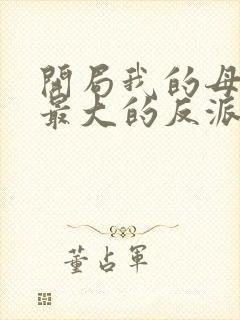 開局我的母
最大的反派
董占軍